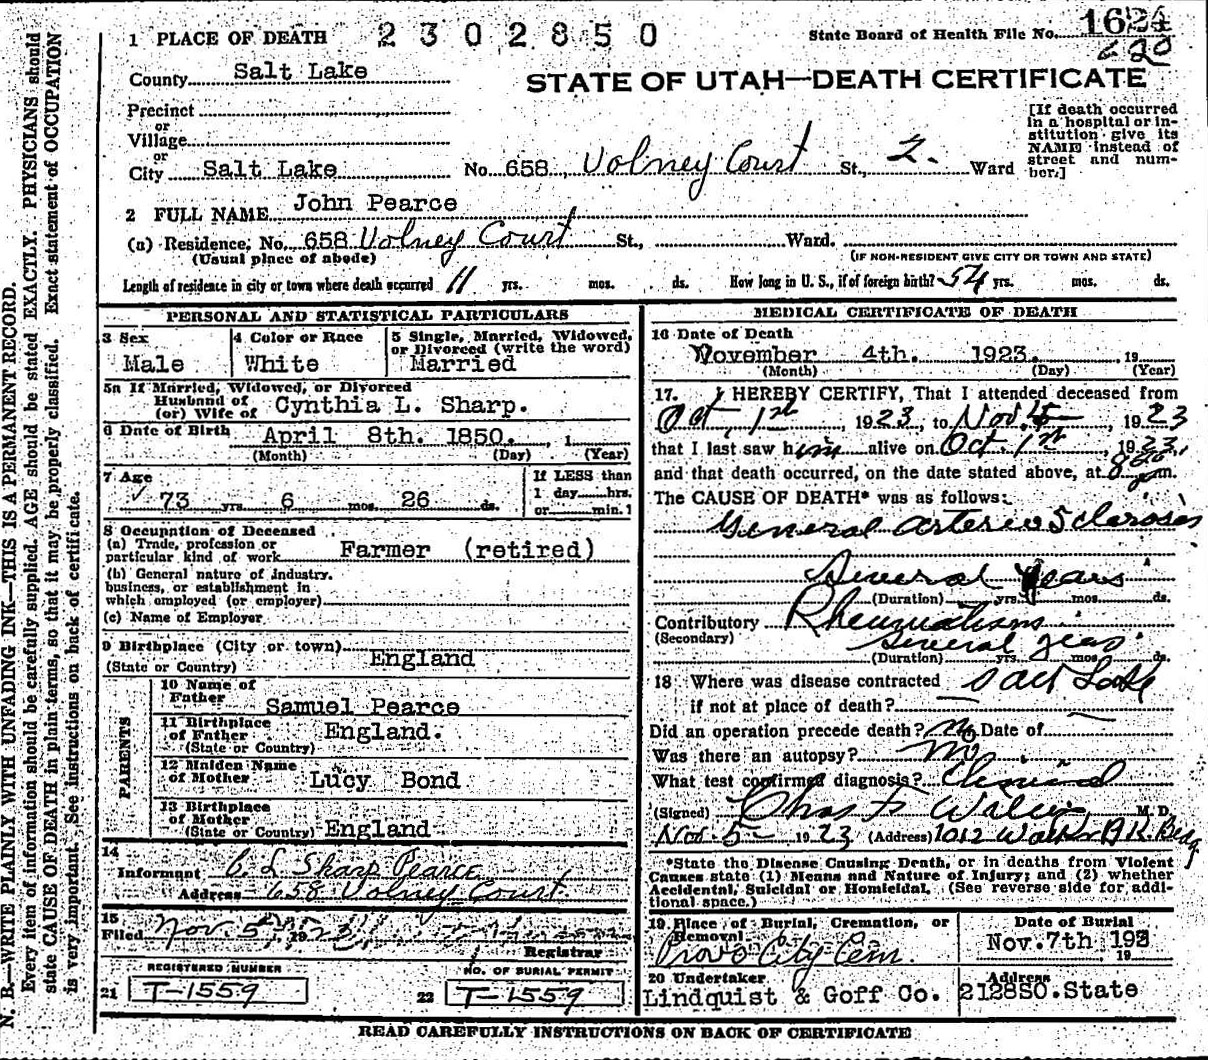 N. B.—WRITE PLAINLY WITH UNFADING INK—THIS IS A PERMANENT RECORD.
Every item of information should be carefully supplied. AGE should be stated EXACTLY. PHYSICIANS should
state CAUSE OF DEATH in plain terms, so that it may be properly classified. Exact statement of OCCUPATION
is very important. See instructions on back of certificate.
1 PLACE OF DEATH 2302850 State Board of Health File No. 1624
620
County Salt Lake
STATE OF UTAH—DEATH CERTIFICATE
Precinct
or
Village
or
City Salt Lake No. 658, Volney Court St., 2. Ward
[If death occurred
in a hospital or in-
stitution give its
NAME instead of
street and num-
ber.]
2 FULL NAME John Pearce
(a) Residence, No. 658 Volney Court St., Ward.
(Usual place of abode) (IF NON-RESIDENT GIVE CITY OR TOWN AND STATE)
Length of residence in city or town where death occurred 11 yrs. mos. ds. How long in U. S., if of foreign birth? 54 yrs. mos. ds.
PERSONAL AND STATISTICAL PARTICULARS
3 Sex
Male
4 Color or Race
White
5 Single, Married, Widowed,
or Divorced (write the word)
Married
5a If Married, Widowed, or Divorced
Husband of
(or) Wife of Cynthia L. Sharp.
6 Date of Birth April 8th. 1850. , 1
(Month) (Day) (Year)
7 Age
73 yrs. 6 mos. 26 ds.
If LESS than
1 day hrs.
or min. 1
8 Occupation of Deceased
(a) Trade, profession or
particular kind of work Farmer (retired)
(b) General nature of industry,
business, or establishment in
which employed (or employer)
(c) Name of Employer
9 Birthplace (City or town)
(State or Country) England
PARENTS
10 Name of
Father Samuel Pearce
11 Birthplace
of Father England.
(State or Country)
12 Maiden Name
of Mother Lucy Bond
13 Birthplace
of Mother
(State or Country) England
14
Informant C. L. Sharp Pearce
Address 658 Volney Court
15
Filed Nov. 5, 1923
Registrar
REGISTERED NUMBER
21 T-1559
NO. OF BURIAL PERMIT
22 T-1559
MEDICAL CERTIFICATE OF DEATH
16 Date of Death
November 4th. 1923. , 19
(Month) (Day) (Year)
17. I HEREBY CERTIFY, That I attended deceased from
Oct. 1st, 1923, to Nov. , 1923
that I last saw him alive on Oct. 1st, 1923,
and that death occurred, on the date stated above, at m.
The CAUSE OF DEATH* was as follows:
General arterio Sclerosis
Several years
(Duration) yrs. mos. ds.
Contributory Rheumatism
(Secondary) Several years
(Duration) yrs. mos. ds.
18 Where was disease contracted Salt Lake
if not at place of death?
Did an operation precede death? No Date of
Was there an autopsy? No
What test confirmed diagnosis? Clinical
(Signed) Chas F. M. D.
Nov. 5 1923 (Address) 1012 Walker BK. Bldg.
*State the Disease Causing Death, or in deaths from Violent
Causes state (1) Means and Nature of Injury; and (2) whether
Accidental, Suicidal or Homicidal. (See reverse side for addi-
tional space.)
19 Place of Burial, Cremation, or
Removal
Provo City Cem.
Date of Burial
Nov. 7th 1923
19
20 Undertaker
Lindquist & Goff Co.
Address
2128SO.State
READ CAREFULLY INSTRUCTIONS ON BACK OF CERTIFICATE